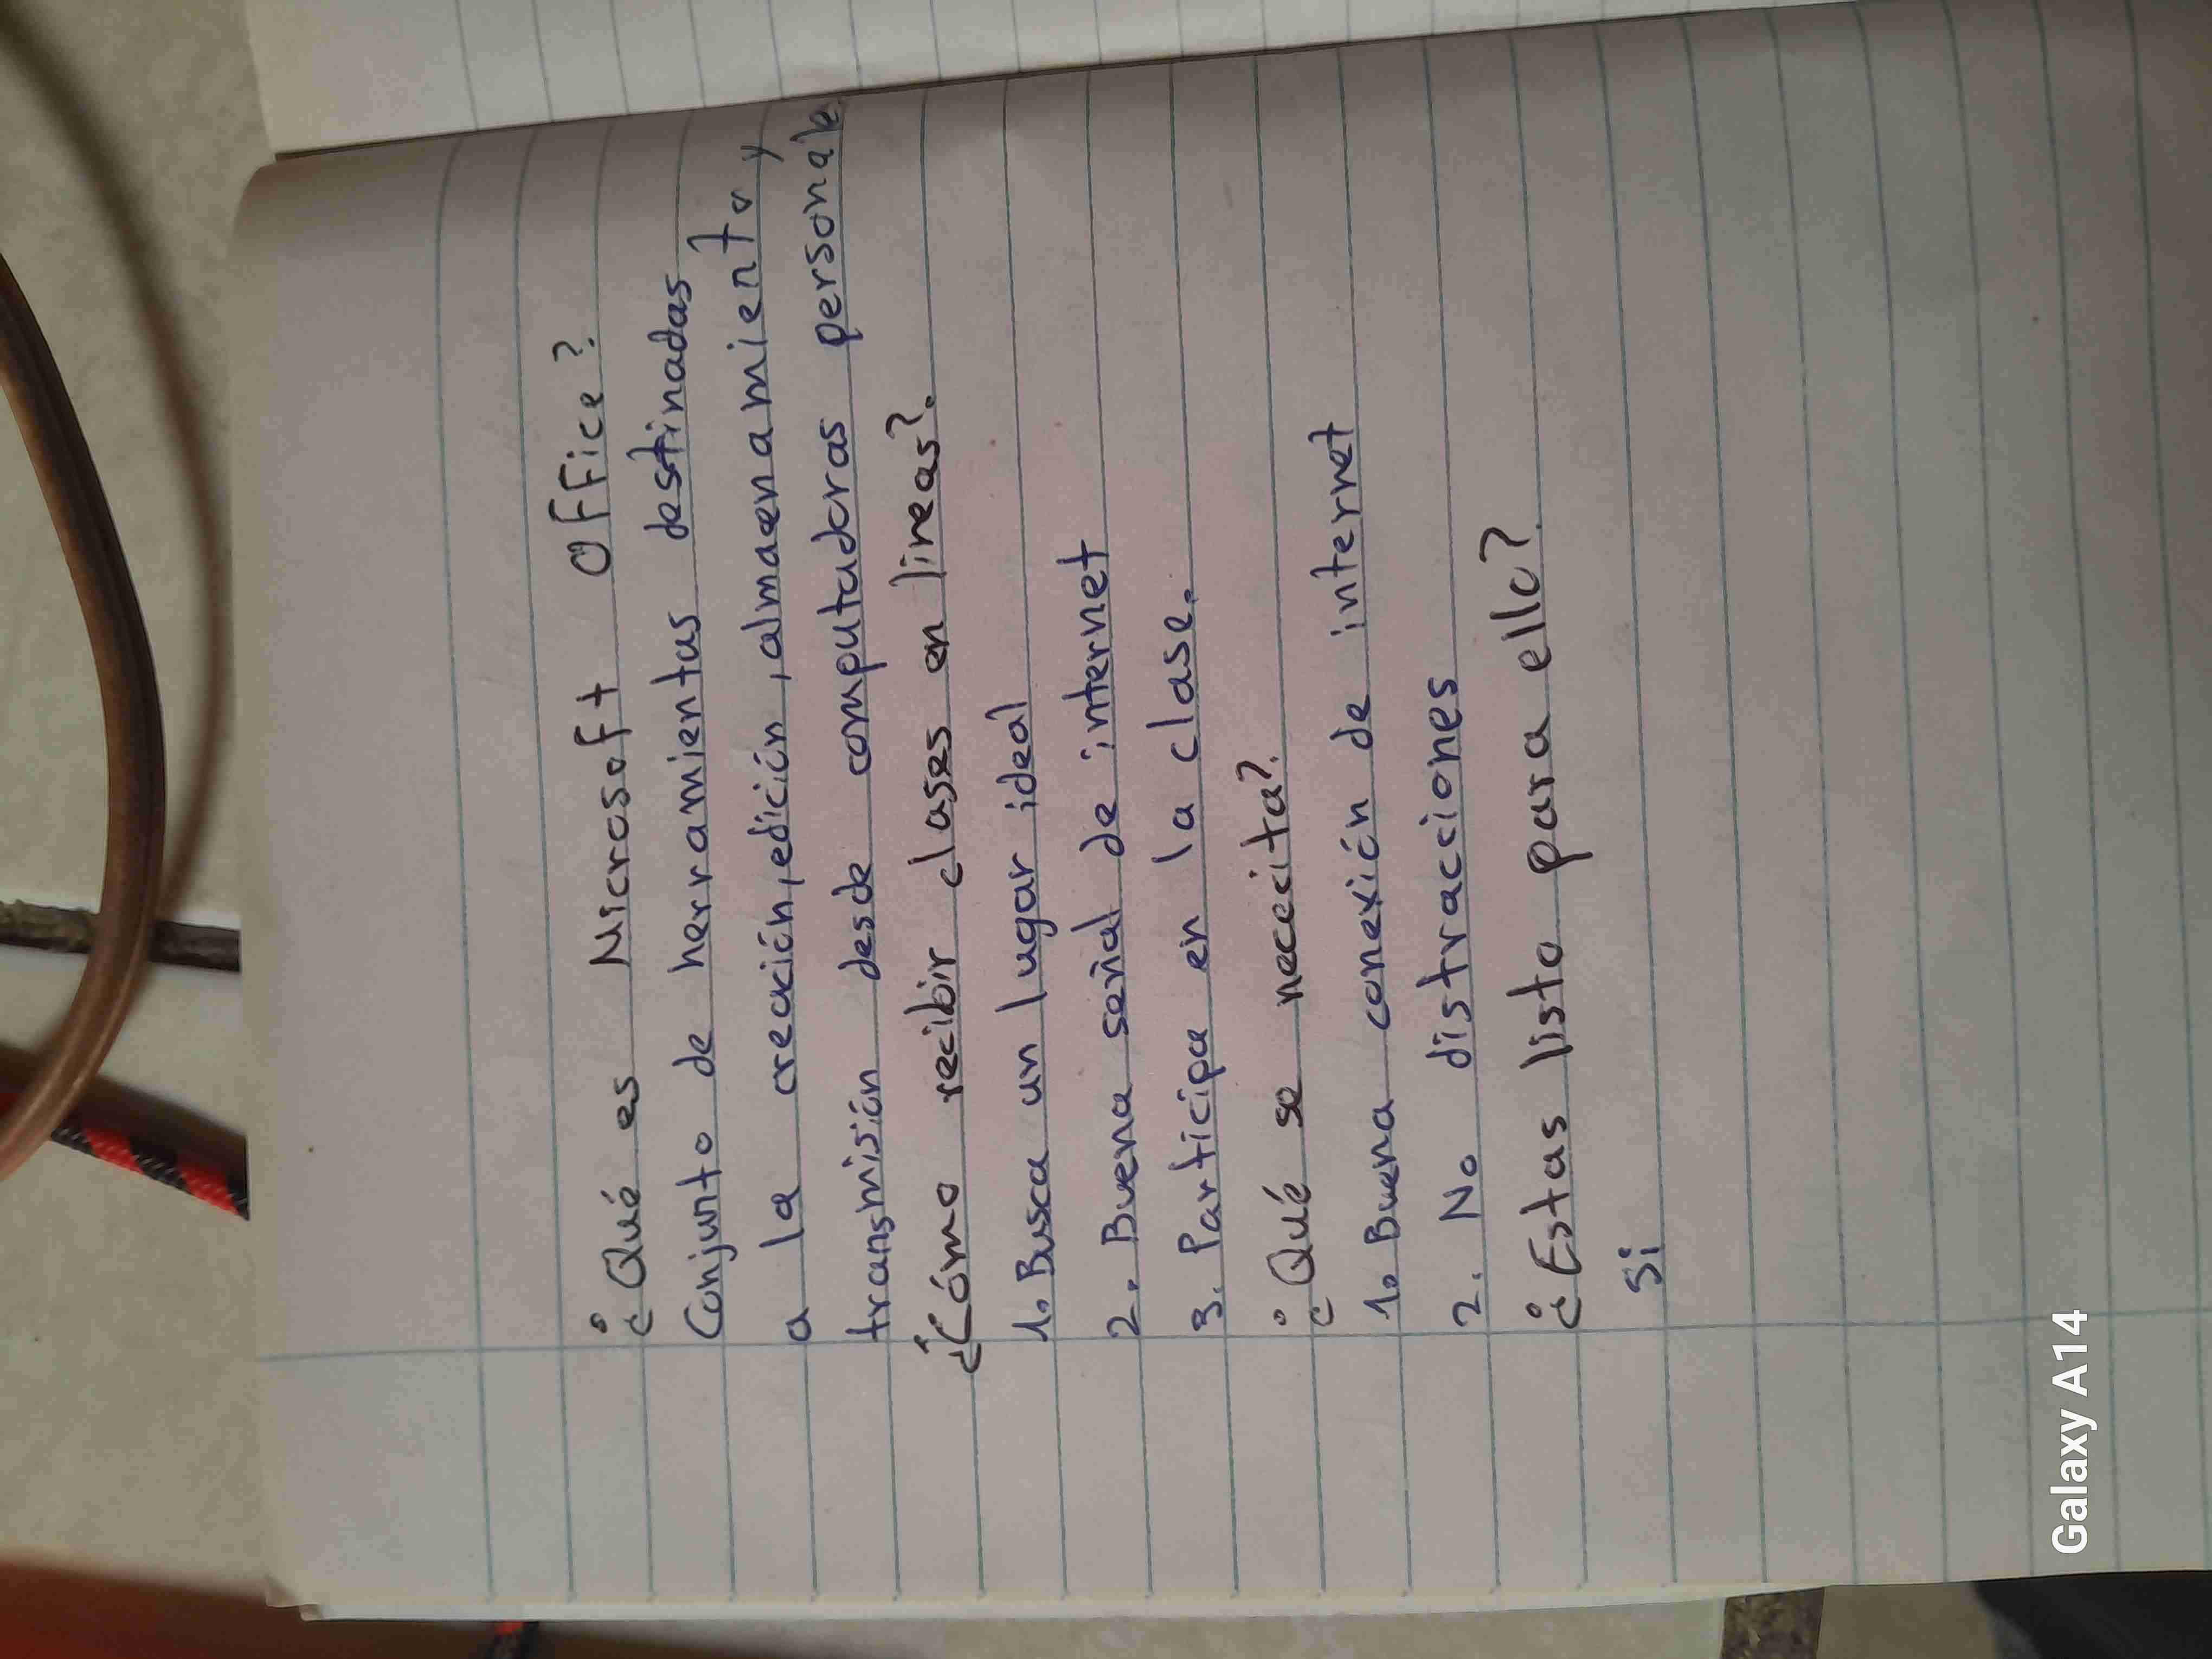 ¿Qué es Microsoft OFFice?
Conjunto de herramientas destinadas
a la creación, edición, almacenamiento y
transmisión desde computadoras personale
¿Cómo recibir clases en lineas?.
1. Busca un lugar ideal
2. Buena señal de internet
3. Participa en la clase.
¿Qué se nececita?.
1. Buena conexión de internet
2. No distracciones
¿Estas listo para ello?
Si
Galaxy A14